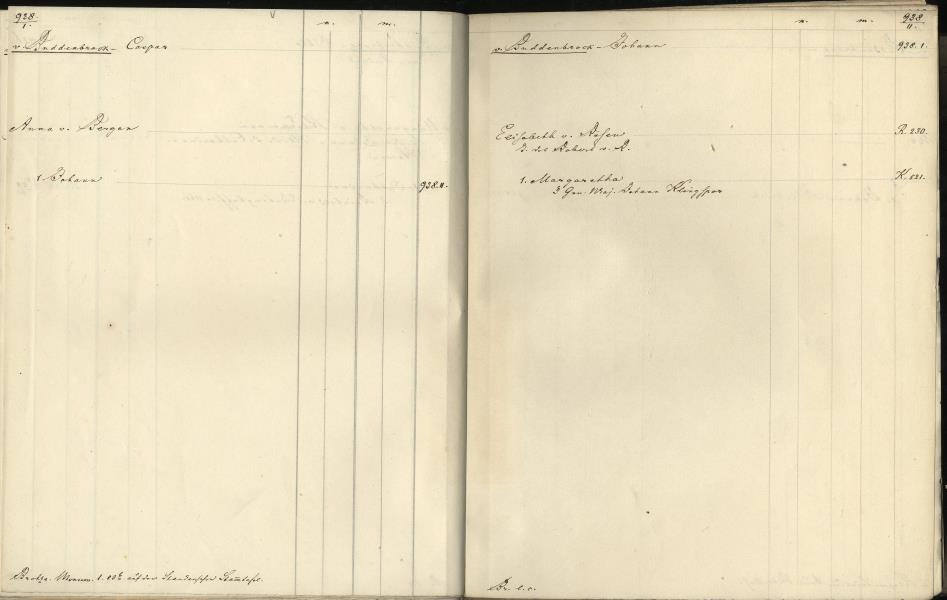 938.
I.
n. m.
v. Buddenbrock - Caspar
Anna v. Bergen
1. Johann 938.II.
Brotze. Monum. 1. auf der Stammtafel.
n. m. 938
II.
v. Buddenbrock - Johann 938.I.
Elisabeth v. Rosen R. 230.
T. des Robert v. R.
1. Margaretha K. 521.
Gen. Maj. Johann Klingspor
Br. l.c.